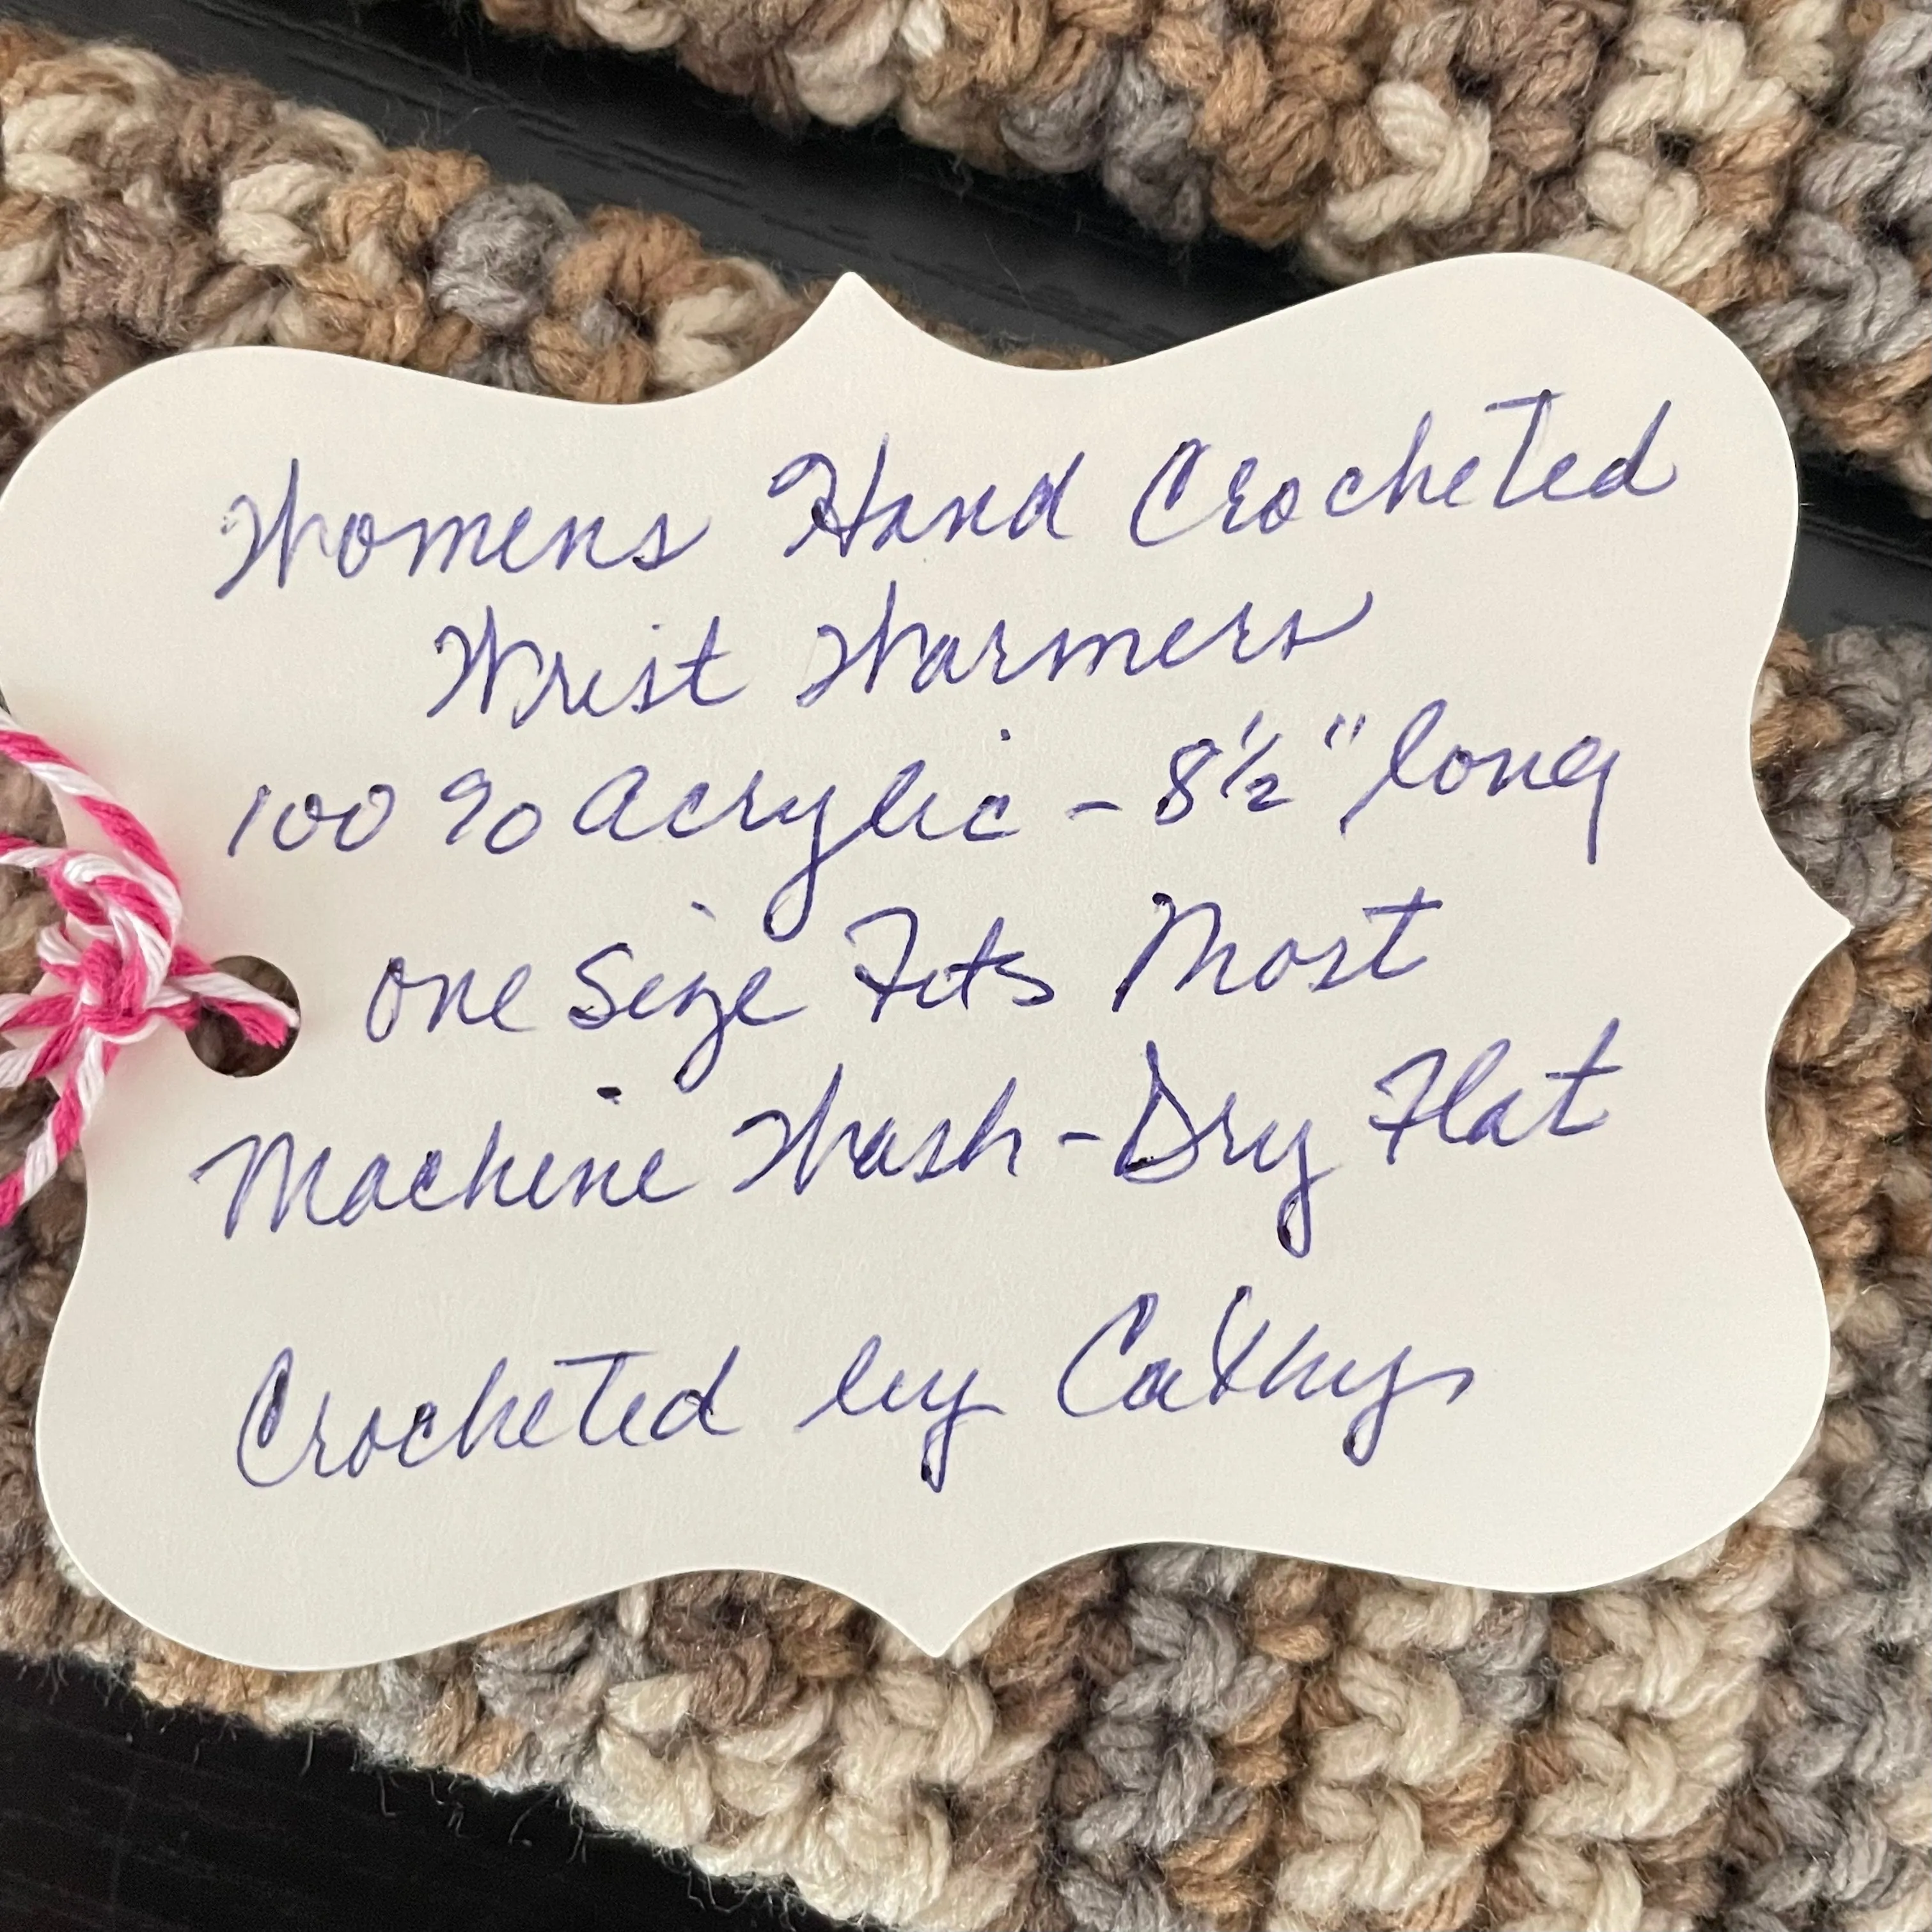 Womens Hand Crocheted
Wrist Warmers
100% Acrylic - 8½" long
One Size Fits Most
Machine Wash - Dry Flat
Crocheted by Cathy